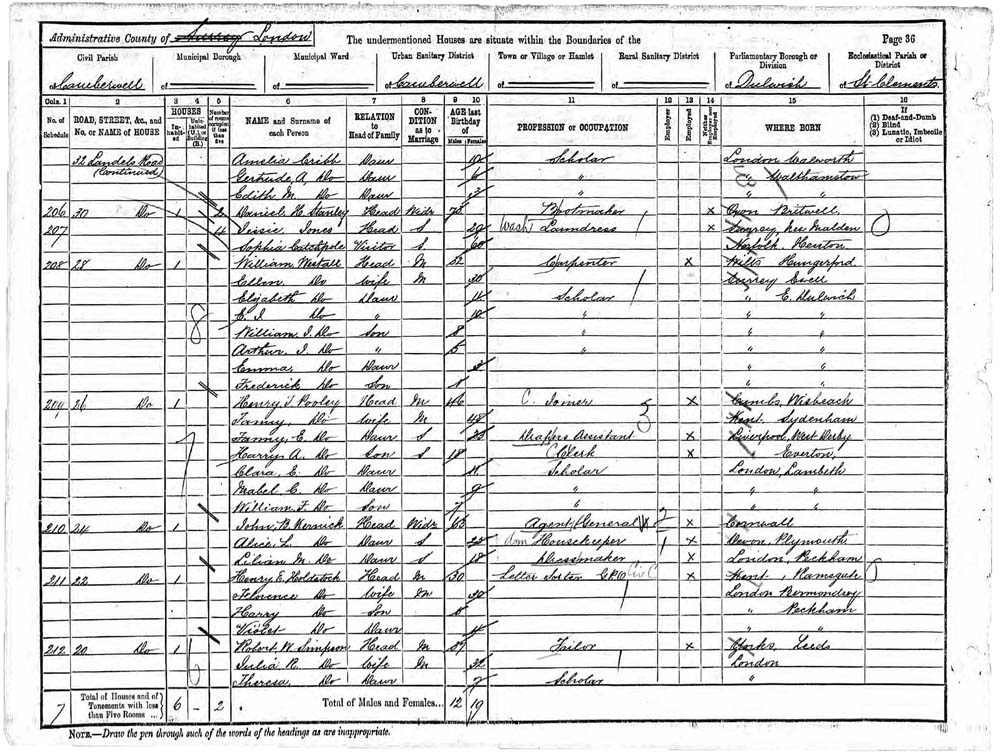 Administrative County of Surrey London
The undermentioned Houses are situate within the Boundaries of the
Page 36
Civil Parish
of Camberwell
Municipal Borough
of
Municipal Ward
of
Urban Sanitary District
of Camberwell
Town or Village or Hamlet
of
Rural Sanitary District
of
Parliamentary Borough or Division
of Dulwich
Ecclesiastical Parish or District
of St Clements
Cols. 1 2 3 4 5 6 7 8 9 10 11 12 13 14 15 16
No. of Schedule
ROAD, STREET, &c., and No. or NAME of HOUSE
HOUSES
Inhabited
Uninhabited (U.), or Building (B.)
Number of rooms occupied if less than five
NAME and Surname of each Person
RELATION to Head of Family
CONDITION as to Marriage
AGE last Birthday of
Males Females
PROFESSION or OCCUPATION
Employer
Employed
Neither Employer nor Employed
WHERE BORN
If
(1) Deaf-and-Dumb
(2) Blind
(3) Lunatic, Imbecile or Idiot
32 Landels Road (Continued) Amelia Cribb Daur 10 Scholar London Walworth
Gertrude, A, Do Daur 6 " " Walthamstow
Edith M. Do Daur 3 " "
206 30 Do 1 2 Daniel H. Stanley Head Widr 70 Bootmaker x Oxon Britwell,
207 4 Jessie, Jones Head S 29 Wash Laundress x Surrey, New Malden
Sophia Catchpole Visitor S 60 Norfolk
208 28 Do 1 William Westall Head M 52 Carpenter x Wilts Hungerford
Ellen, Do Wife M 30 Surrey Ewell
Elizabeth Do Daur 14 Scholar " E. Dulwich
E. I Do " 10 " " "
William, I. Do Son 8 " " "
Arthur, I. Do " 5 " " "
Emma, Do Daur 3 " "
Frederick Do Son 1 " "
209 26 Do 1 Henry I Pooley Head M 46 C. Joiner x Cambs, Wisbeach
Fanny, Do Wife M 48 Kent, Sydenham
Fanny, E. Do Daur S 23 Drapers Assistant x Liverpool, West Derby
Harry, A. Do Son S 18 Clerk x " Everton,
Clara, E. Do Daur 11 Scholar London, Lambeth
Mabel C. Do Daur 9 " " "
William, F. Do Son 7 " " "
210 24 Do 1 John, B. Kernick Head Widr 65 Agent (General) x Cornwall
Alice, L. Do Daur S 28 dom Housekeeper x Devon, Plymouth
Lilian M. Do Daur S 18 Dressmaker x London, Peckham
211 22 Do 1 Henry E. Holdstock Head M 30 Letter Sorter G.P.O Civ C x Kent, Ramsgate
Florence Do Wife M 30 London Bermondsey
Harry Do Son 5 " Peckham
Violet Do Daur 4 " "
212 20 Do 1 Robert, W. Simpson Head M 39 Tailor x Yorks, Leeds
Julia R. Do Wife M 32 London
Theresa, Do Daur 7 Scholar "
7
Total of Houses and of Tenements with less than Five Rooms ... 6 – 2
Total of Males and Females... 12 19
NOTE.—Draw the pen through such of the words of the headings as are inappropriate.